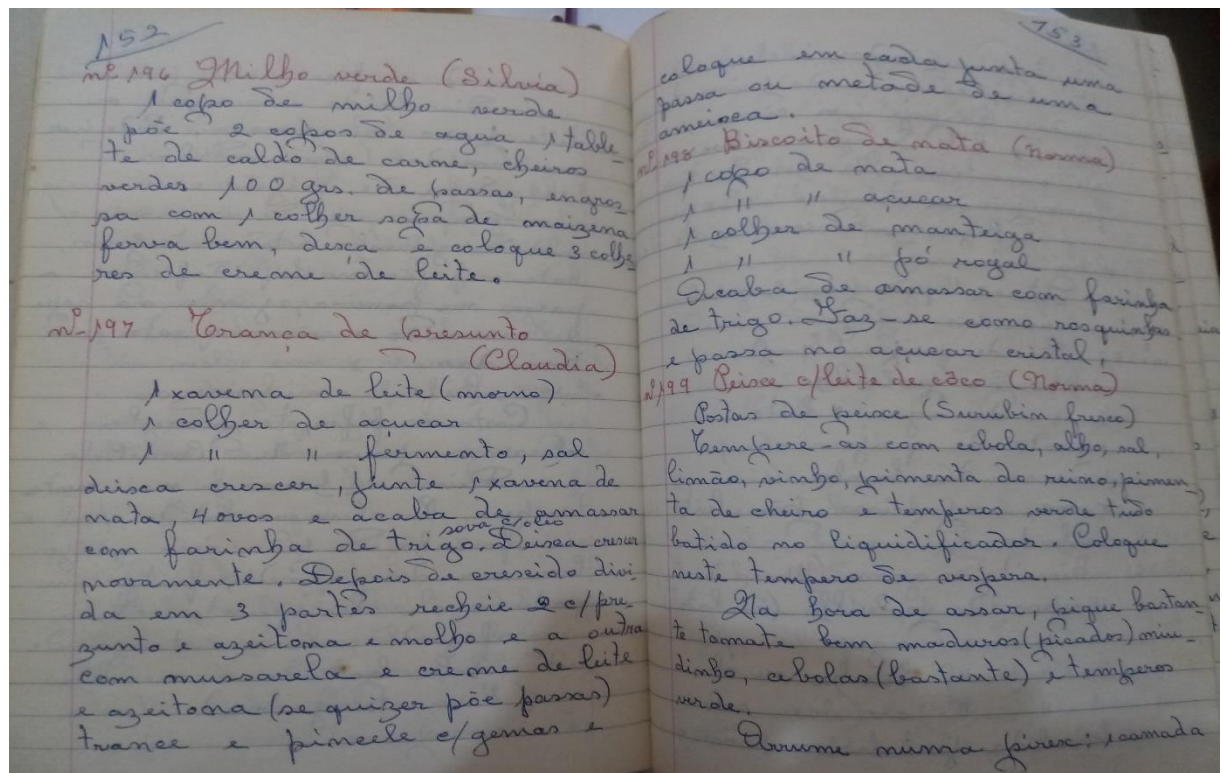 152
nº 196 Milho verde (Silvia)
1 copo de milho verde
põe 2 copos de agua 1 table-
te de caldo de carne, cheiros
verdes 100 grs. de passas, engros-
sa com 1 colher sopa de maizena
ferva bem, desça e coloque 3 colhe
res de creme de leite.
nº 197 Trança de presunto
(Claudia)
1 xavena de leite (morno)
1 colher de açucar
1 " " fermento, sal
deixa crescer, junte 1 xavena de
nata, 4 ovos e acaba de amassar
sova c/óleo
com farinha de trigo. Deixa crescer
novamente. Depois de crescido divi-
da em 3 partes recheie 2 c/pre-
zunto e azeitona e molho e a outra
com mussarela e creme de leite
e azeitona (se quizer põe passas)
trance e pincele c/gemas e
153
coloque em cada junta uma
passa ou metade de uma
ameixa.
nº 198 Biscoito de nata (Norma)
1 copo de nata
1 " " açucar
1 colher de manteiga
1 " " pó royal
Acaba de amassar com farinha
de trigo. Faz-se como rosquinhas
e passa no açucar cristal.
nº 199 Peixe c/leite de côco (Norma)
Postas de peixe (Surubin fresco)
Tempere-as com cebola, alho, sal,
limão, vinho, pimenta do reino, pimen-
ta de cheiro e temperos verde tudo
batido no liquidificador. Coloque
neste tempero de vespera.
Na hora de assar, pique bastan-
te tomate bem maduros (picados) miu-
dinho, cebolas (bastante) e temperos
verde.
Arrume numa pirex: 1 camada